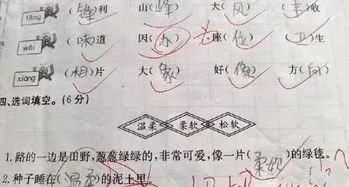 fēng (锋)利 山(峰) 大(风) (丰)收
wèi (味)道 因(为) 座(位) (卫)生
xiàng (相)片 大(象) 好(像) 方(向)
四、选词填空。(6分)
温柔 柔软 松软
1.路的一边是田野,葱葱绿绿的,非常可爱,像一片(柔软)的绿毯。
2.种子睡在(温柔)的泥土里